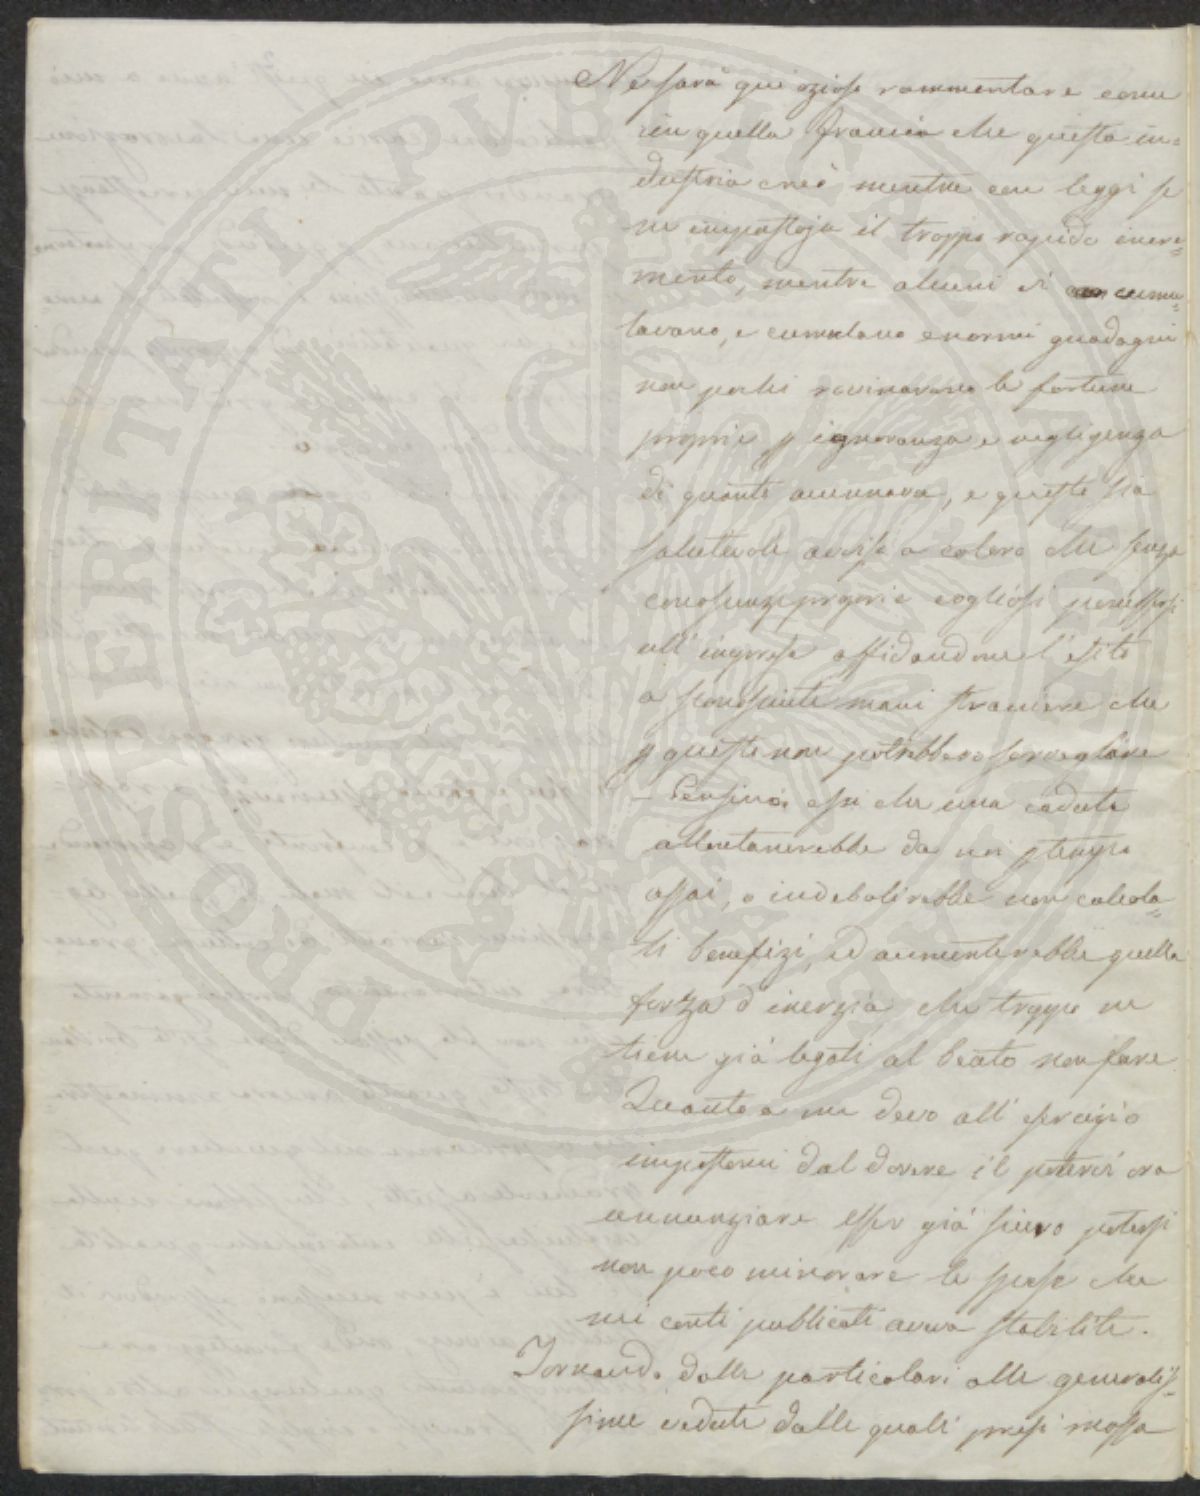 Ne sarà qui ozioso rammentare come
in quella francia che questa in=
dustria creò, mentre con leggi se
ne impastoja il troppo rapido incre=
mento, mentre alcuni si cumu=
lavano, e cumulano enormi guadagni
non pochi rovinarono le fortune
proprie p ignoranza e negligenza
di quanti accennava, e questo sia
salutevole avviso a coloro che senza
conoscenze proprie vogliosi
all' impresa affidandone l' esito
a sconosciute mani straniere che
p questo non potrebbero sorvegliare
– Pensino essi che una caduta
allontanerebbe da noi p tempo
assai, o indebolirebbe non calcola=
ti benefizi, ed aumenterebbe quella
forza d' inerzia che troppo ne
tiene già legati al beato non fare
Quanto a me devo all' esercizio
impostomi dal dovere il potervi ora
annunziare esser già sicuro potersi
non poco minorare le spese che
nei conti publicati aveva stabilite.
Tornando dalle particolari alle generalis=
sime vedute dalle quali presi mossa
PROSPERITATI PVBLICAE AVGENDAE